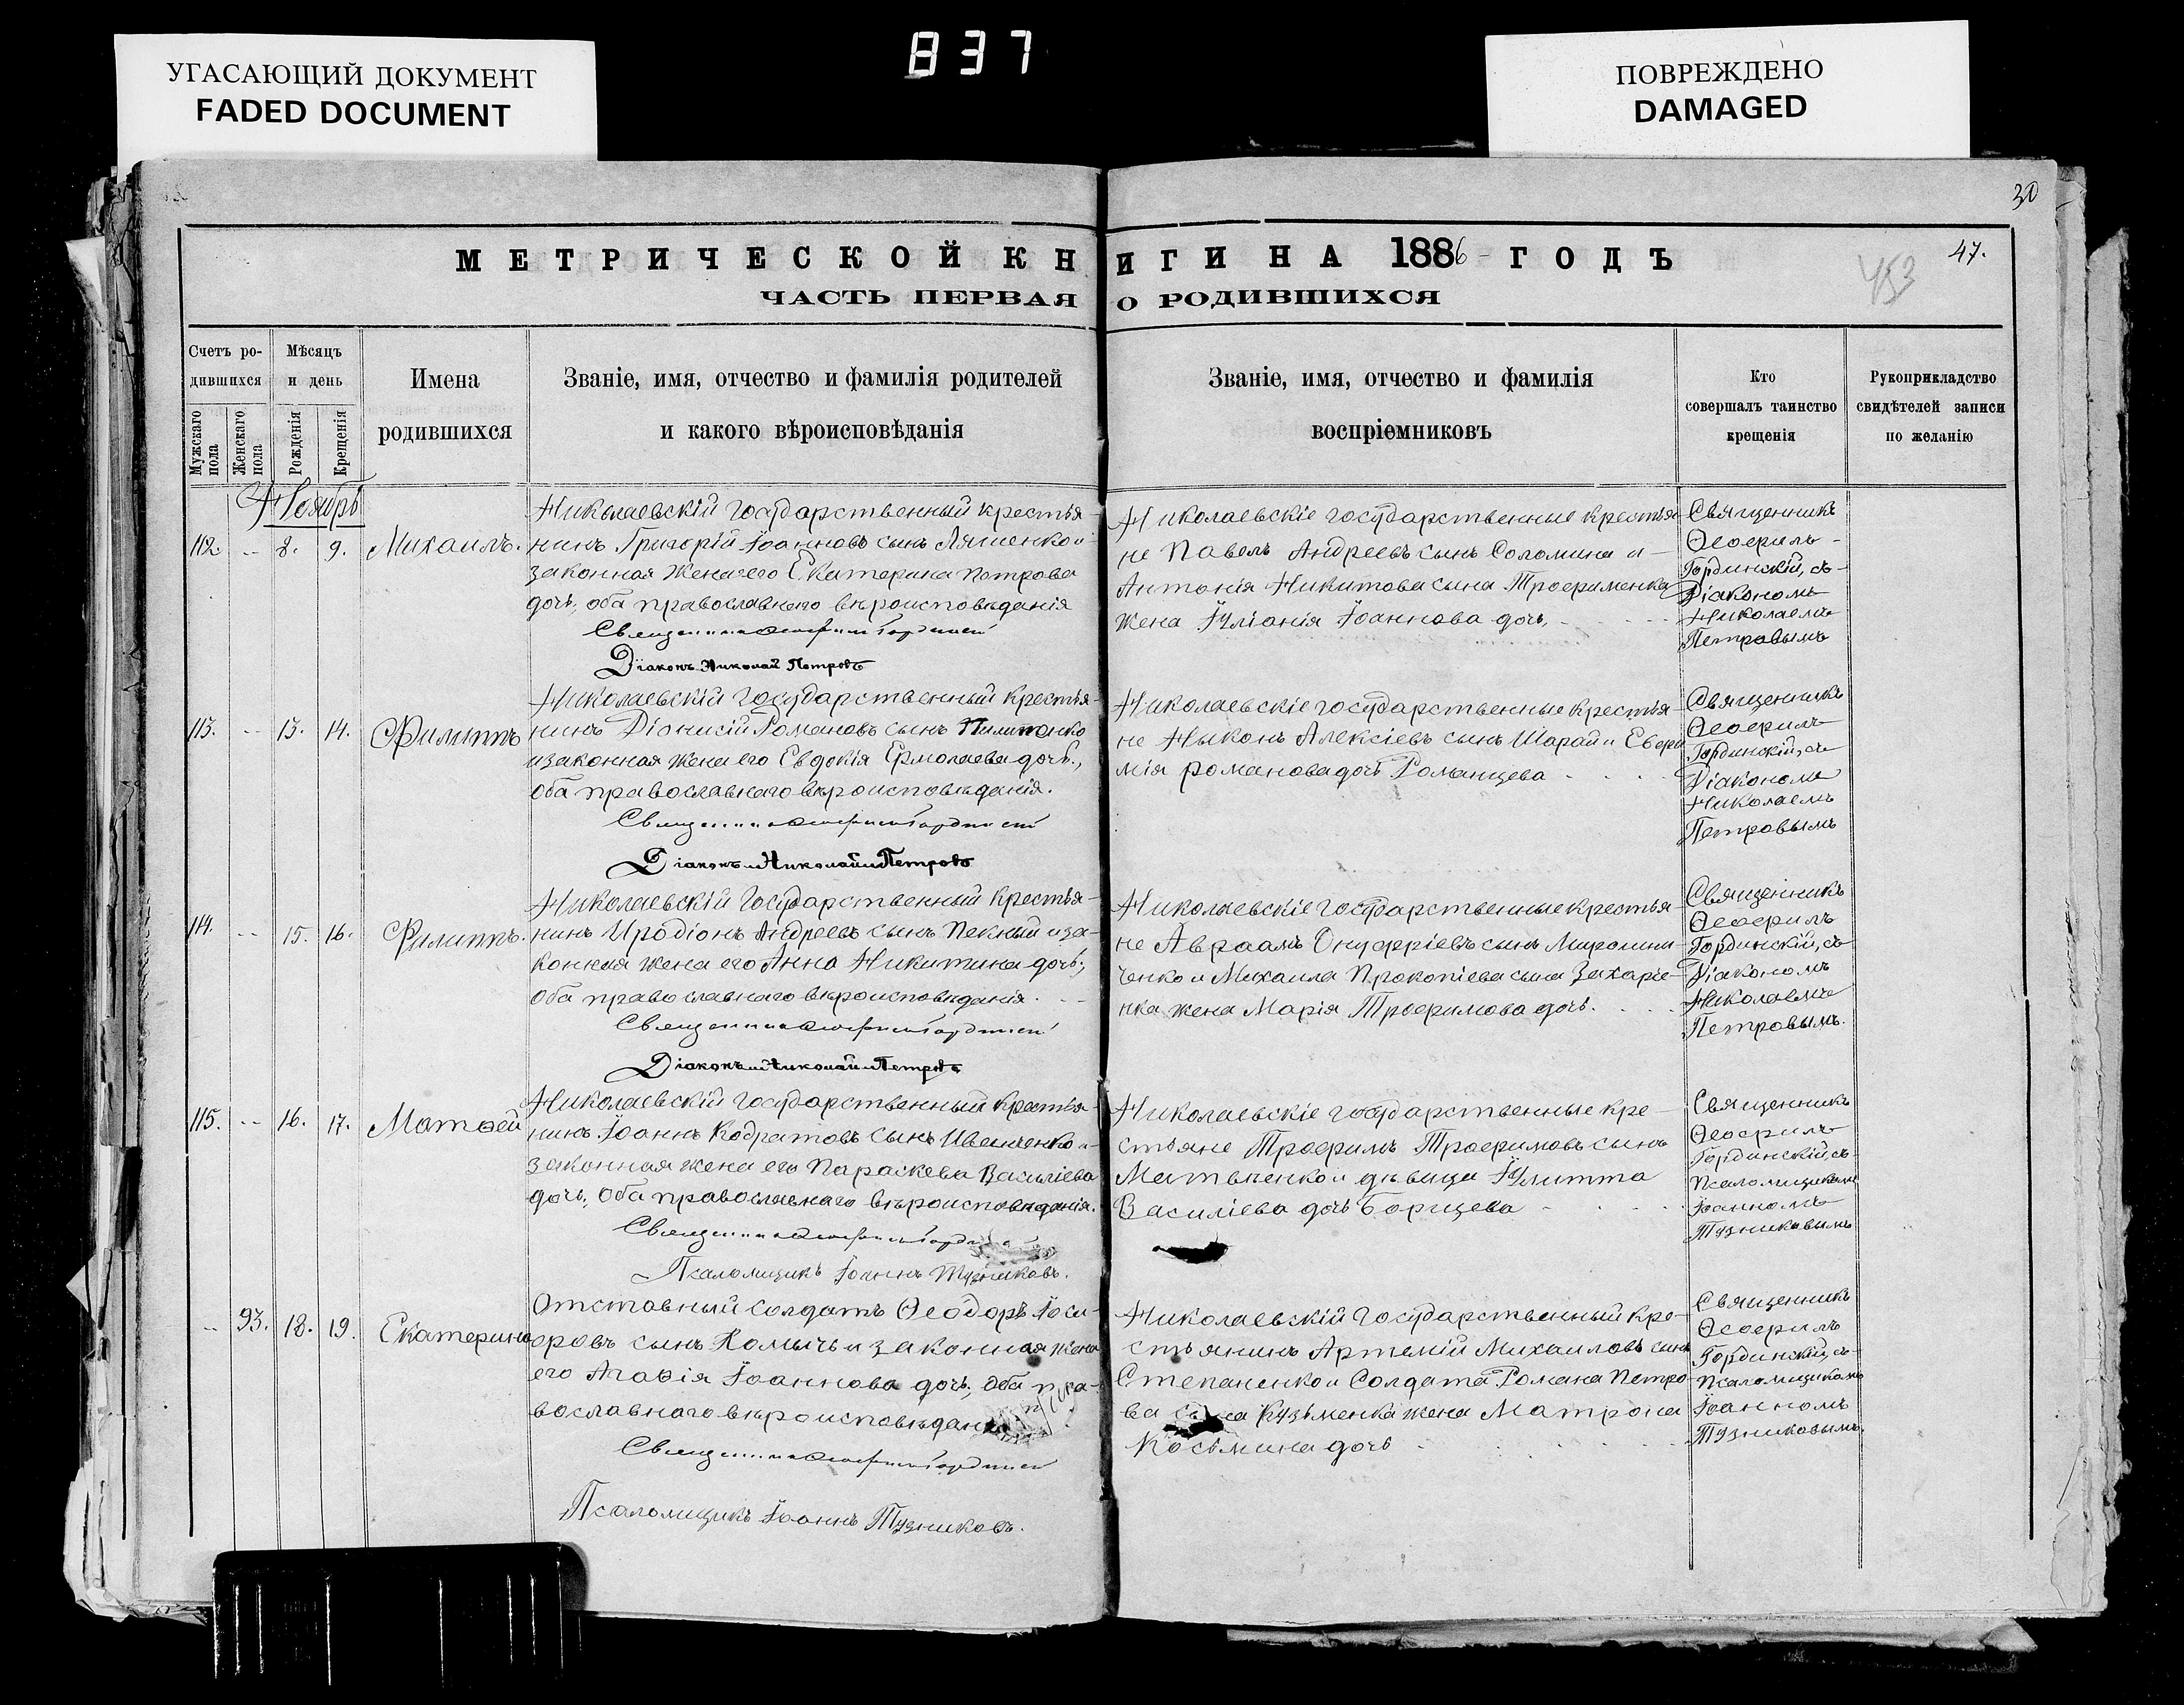 УГАСАЮЩИЙ ДОКУМЕНТ
FADED DOCUMENT
837
ПОВРЕЖДЕНО
DAMAGED
30
МЕТРИЧЕСКОЙ КНИГИ НА 1886 ГОДЪ
47.
453
ЧАСТЬ ПЕРВАЯ О РОДИВШИХСЯ
Счетъ ро-
дившихся
Мужскаго пола
Женскаго пола
Мѣсяцъ
и день
Рожденія
Крещенія
Имена
родившихся
Званіе, имя, отчество и фамилія родителей
и какого вѣроисповѣданія
Званіе, имя, отчество и фамилія
воспріемниковъ
Кто
совершалъ таинство
крещенія
Рукоприкладство
свидѣтелей записи
по желанію
Ноябрь
112. -- 8. 9. Михаилъ.
Николаевскій государственный крестья-
нинъ Григорій Іоанновъ сынъ Ляшенко и
законная жена его Екатерина Петрова
дочь, оба православнаго вѣроисповѣданія
Священникъ Ѳеофилъ Гординскій
Діаконъ Николай Петровъ
Николаевскіе государственные крестья-
не Павелъ Андреевъ сынъ Соломина и
Антонія Никитова сына Трофименка
жена Іуліанія Іоаннова дочь,
Священникъ
Ѳеофилъ
Гординскій, съ
Діакономъ
Николаемъ
Петровымъ
113. -- 13. 14. Филиппъ
Николаевскій государственный крестья-
нинъ Діонисій Романовъ сынъ Пилипенко
и законная жена его Евдокія Ермолаева дочь,
оба православнаго вѣроисповѣданія.
Священникъ Ѳеофилъ Гординскій
Діаконъ Николай Петровъ
Николаевскіе государственные крестья-
не Ныконъ Алексіевъ сынъ Шарай и Евфи
мія Романова дочь Романцева
Священникъ
Ѳеофилъ
Гординскій, съ
Діакономъ
Николаемъ
Петровымъ
114. -- 15. 16. Филиппъ.
Николаевскій государственный крестья-
нинъ Иродіонъ Андреевъ сынъ Пекный и за-
конная жена его Анна Никитина дочь;
оба православнаго вѣроисповѣданія.
Священникъ Ѳеофилъ Гординскій
Діаконъ Николай Петровъ
Николаевскіе государственные крестья-
не Авраамъ Онуфріевъ сынъ Мирошни-
ченко и Михаила Прокопіева сына Захаріе-
нка жена Марія Трофимова дочь.
Священникъ
Ѳеофилъ
Гординскій, съ
Діакономъ
Николаемъ
Петровымъ.
115. -- 16. 17. Матѳей
Николаевскій государственный крестья-
нинъ Іоаннъ Кодратовъ сынъ Иванченко и
законная жена его Параскева Василіева
дочь, оба православнаго вѣроисповѣданія.
Священникъ Ѳеофилъ Гординскій
Псаломщикъ Іоаннъ Тузниковъ.
Николаевскіе государственные кре-
стьяне Трофимъ Трофимовъ сынъ
Матвѣенко и дѣвица Іулитта
Василіева дочь Борщева
Священникъ
Ѳеофилъ
Гординскій съ
Псаломщикомъ
Іоанномъ
Тузниковымъ
-- 93. 18. 19. Екатерина
Отставный солдатъ Ѳеодоръ Іоси-
фовъ сынъ Хомичъ и законная жена
его Агаѳія Іоаннова дочь, оба пра-
вославнаго вѣроисповѣданія
Священникъ Ѳеофилъ Гординскій
Псаломщикъ Іоаннъ Тузниковъ.
Николаевскій государственный кре-
стьянинъ Артемій Михаиловъ сынъ
Степаненко и Солдата Романа Петро
ва сына Кузьменка жена Матрона
Косьмина дочь
Священникъ
Ѳеофилъ
Гординскій, съ
Псаломщикомъ
Іоанномъ
Тузниковымъ.